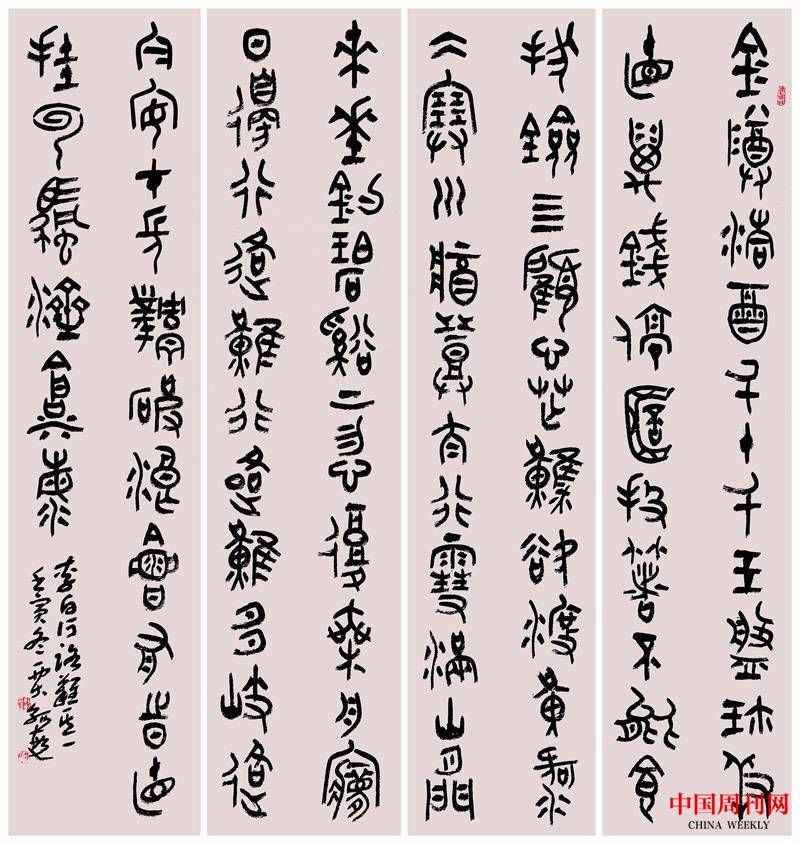 金樽清酒斗十千玉盤珍羞
直萬錢停杯投箸不能食
拔劍四顧心茫然欲渡黃河
冰塞川將登太行雪滿山閒
來垂釣碧谿上忽復乘舟夢
日邊行路難行路難多歧路
今安在長風破浪會有時直
掛雲帆濟滄海
李白行路難其一
壬寅冬一粟
中国周刊网
CHINA WEEKLY